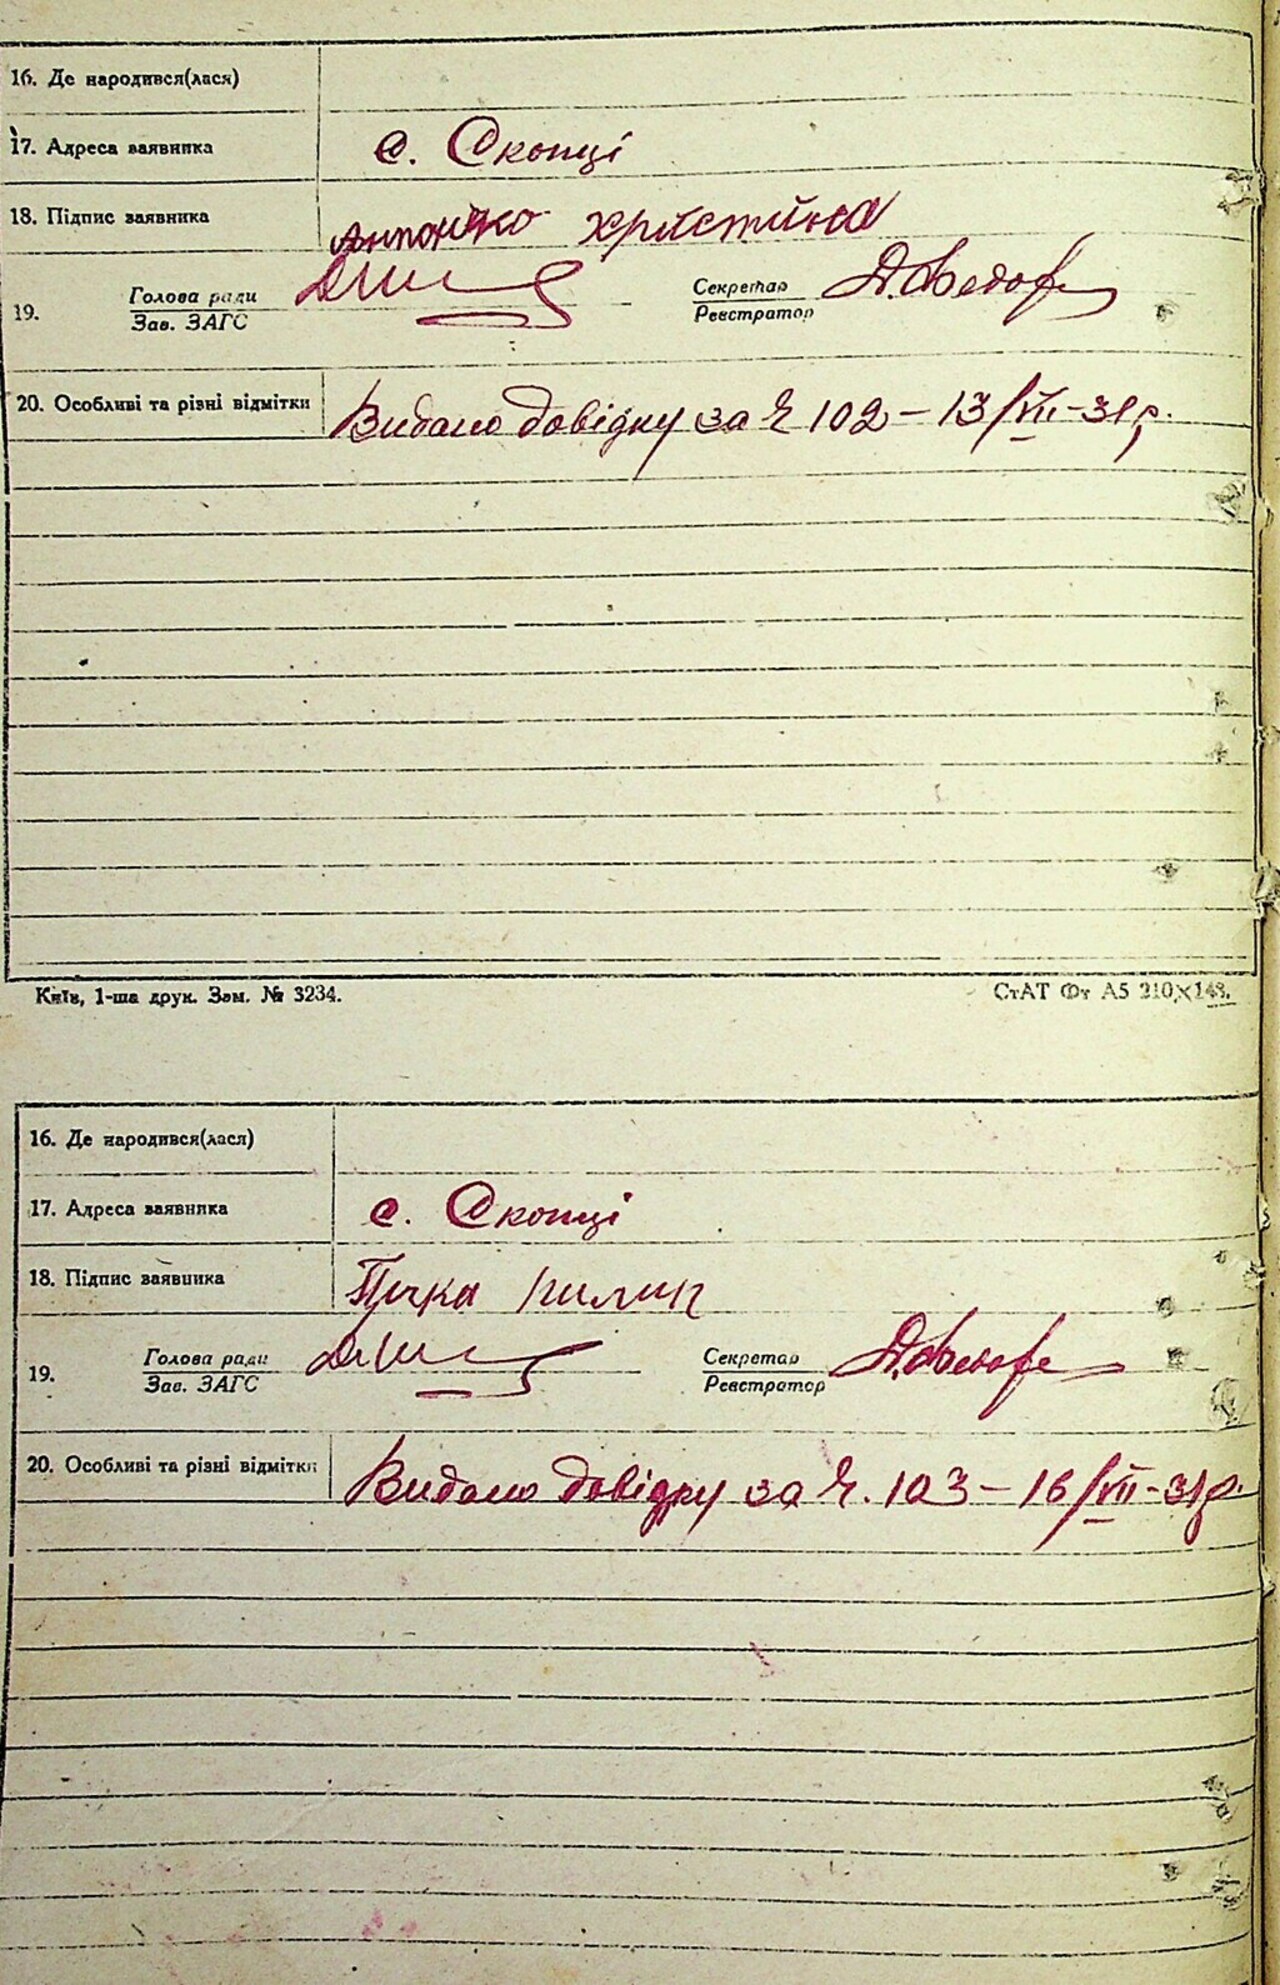 16. Де народився(лася)
17. Адреса заявника с. Скопці
18. Підпис заявника Христина
Голова ради Секретар
19. Зав. ЗАГС Реєстратор
20. Особливі та різні відмітки Видано довідку за Ч 102 – 13/VII-31 р.
Київ, 1-ша друк. Зам. № 3234. СтАТ Фт А5 210×148.
16. Де народився(лася)
17. Адреса заявника с. Скопці
18. Підпис заявника Пилип
Голова ради Секретар
19. Зав. ЗАГС Реєстратор
20. Особливі та різні відмітки Видано довідку за Ч. 103 – 16/VII-31 р.